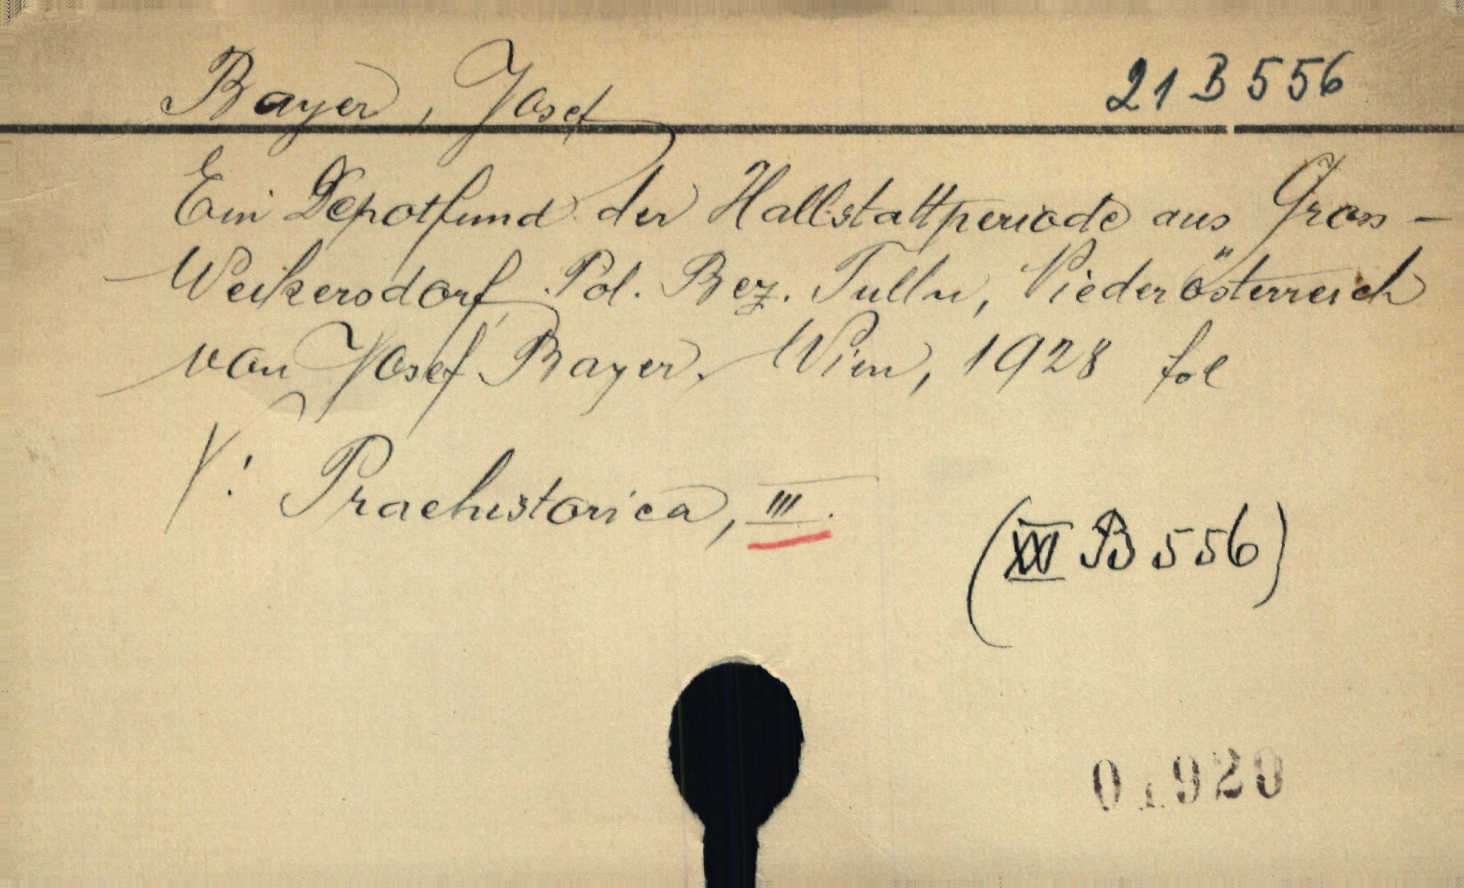 Bayer, Josef
21 B 556
Ein Depotfund der Hallstattperiode aus Gross-
Weikersdorf, Pol. Bez. Tulln, Niederösterreich
von Josef Bayer. Wien, 1928 fol
V: Praehistorica, III.
(XXI B 556)
01920